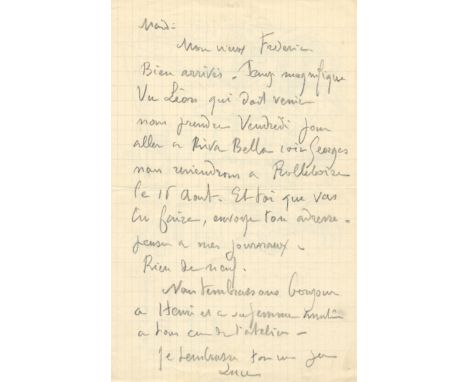 Mardi
Mon vieux Frédéric
Bien arrivés. Temps magnifique
Vu Léon qui doit venir
nous prendre Vendredi pour
aller a Riva Bella voir Georges
nous reviendrons a Rolleboise
le 15 Aout. Et toi que vas
tu faire, envoye ton adresse -
pense a mes journaux -
Rien de neuf.
Nous t'embrassons bonjour
a Henri et a sa femme
a tous ceux de l'atelier -
Je t'embrasse ton
Luce